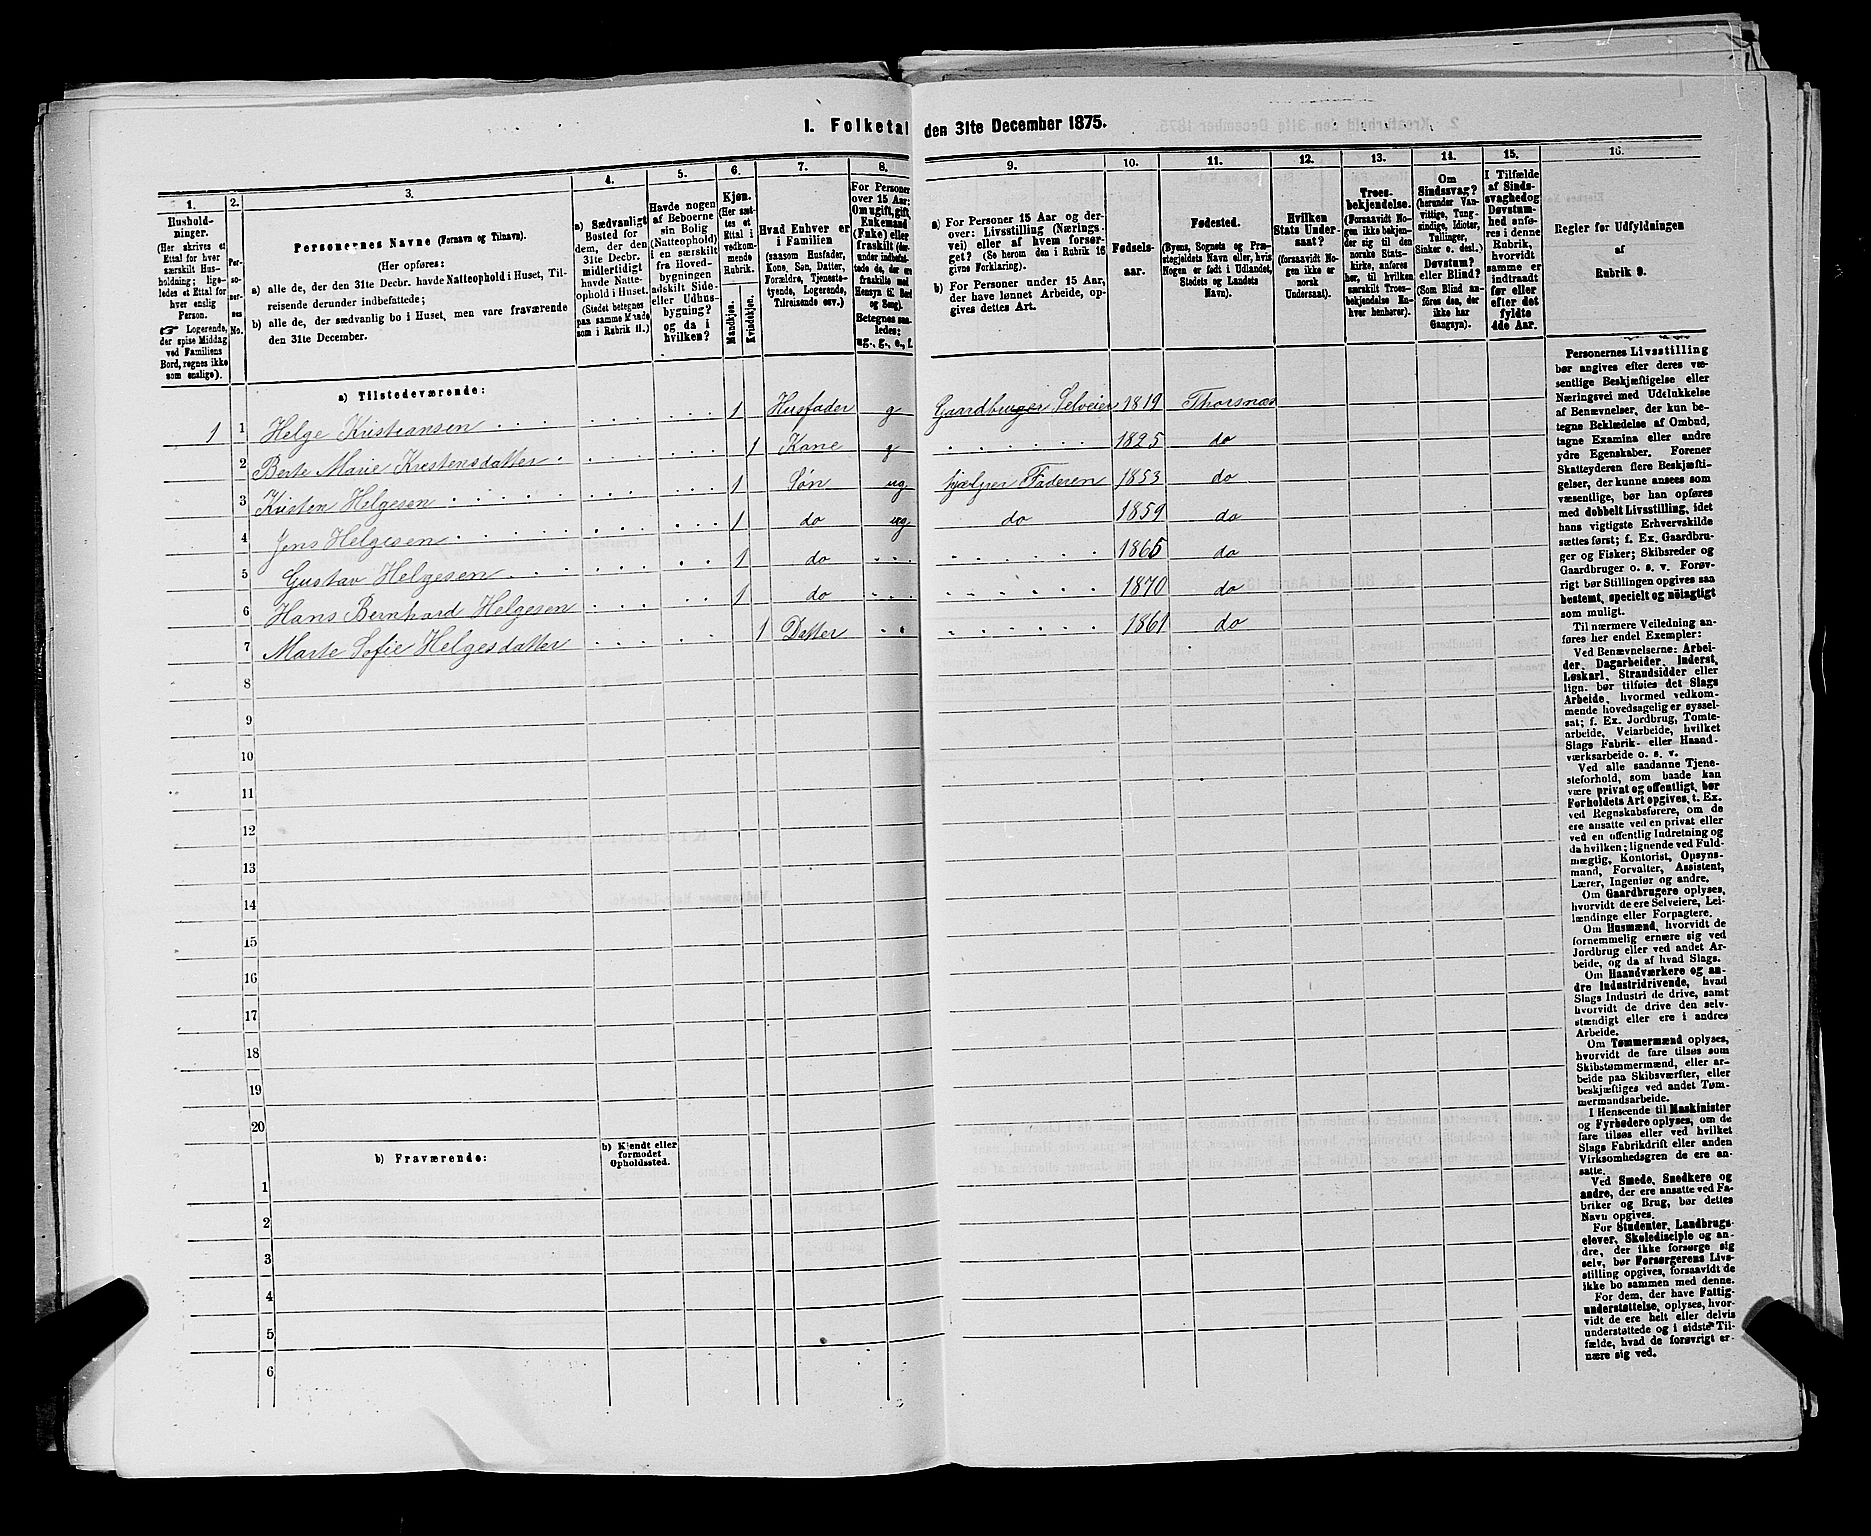 1. Folketal den 31te December 1875.
1. 2. 3. 4. 5. 6. 7. 8. 9. 10. 11. 12. 13. 14. 15. 16.
Hushold-
ninger.
(Her skrives et
Ettal for hver
særskilt Hus-
holdning; lige-
ledes et Ettal for
hver enslig
Person.
☞ Logerende,
der spise Middag
ved Familiens
Bord, regnes ikke
som enslige).
Per-
so-
ner-
nes
No.
Personernes Navne (Fornavn og Tilnavn).
(Her opføres:
a) alle de, der den 31te Decbr. havde Natteophold i Huset, Til-
reisende derunder indbefattede;
b) alle de, der sædvanlig bo i Huset, men vare fraværende
den 31te December.
a) Sædvanligt
Bosted for
dem, der den
31te Decbr.
midlertidigt
havde Natte-
ophold i Huset.
(Stedet betegnes
paa samme Maade
som i Rubrik 11.)
Havde nogen
af Beboerne
sin Bolig
(Natteophold)
i en særskilt
fra Hoved-
bygningen
adskilt Side-
eller Udhus-
bygning?
og da i
hvilken?
Kjøn.
(Her sæt-
tes et
Ettal i
vedkom-
mende
Rubrik.
Mandkjøn.
Kvindekjøn.
Hvad Enhver er
i Familien
(saasom Husfader,
Kone, Søn, Datter,
Forældre, Tjeneste-
tyende, Logerende,
Tilreisende osv.)
For Personer
over 15 Aar:
Om ugift, gift,
Enkemand
(Enke) eller
fraskilt (der-
under indbefat-
tede de, der ere
fraskilte med
Hensyn til Bord
og Seng).
Betegnes saa-
ledes:
ug., g., e., f.
a) For Personer 15 Aar og der-
over: Livsstilling (Nærings-
vei) eller af hvem forsør-
get? (Se herom den i Rubrik 16
givne Forklaring).
b) For Personer under 15 Aar,
der have lønnet Arbeide, op-
gives dettes Art.
Fødsels-
aar.
Fødested.
(Byens, Sognets og Præ-
stegjeldets Navn eller, hvis
Nogen er født i Udlandet,
Stedets og Landets
Navn).
Hvilken
Stats Under-
saat?
(forsaavidt No-
gen ikke er
norsk
Undersaat).
Troes-
bekjendelse.
(Forsaavidt No-
gen ikke bekjen-
der sig til den
norske Stats-
kirke, anføres
her, til hvilken
særskilt Troes-
bekjendelse En-
hver henhører).
Om
Sindssvag?
(herunder Van-
vittige, Tung-
sindige, Idioter,
Tullinger,
Sinker o. desl.)
Døvstum?
eller Blind?
(Som Blind an-
føres den, der
ikke har
Gangsyn).
I Tilfælde
af Sinds-
svaghed og
Døvstum-
hed anfø-
res i denne
Rubrik,
hvorvidt
samme er
indtraadt
før eller
efter det
fyldte
4de Aar.
Regler for Udfyldningen
af
Rubrik 9.
a) Tilstedeværende:
1 1 Helge Kristiansen 1 Husfader g Gaardbruger Selveier 1819 Thorsnæs
2 Berte Marie Kristensdatter 1 Kone g 1825 do
3 Kristen Helgesen 1 Søn ug hjælper Faderen 1853 do
4 Jens Helgesen 1 do ug do 1859 do
5 Gustav Helgesen 1 do 1865 do
6 Hans Bernhard Helgesen 1 do 1870 do
7 Marte Sofie Helgesdatter 1 Datter 1861 do
8
9
10
11
12
13
14
15
16
17
18
19
20
b) Fraværende:
b) Kjendt eller
formodet
Opholdssted.
1
2
3
4
5
6
Personernes Livsstilling
bør angives efter deres væ-
sentlige Beskjæftigelse eller
Næringsvei med Udelukkelse
af Benævnelser, der kun be-
tegne Beklædelse af Ombud,
tagne Examina eller andre
ydre Egenskaber. Forener
Skatteyderen flere Beskjæfti-
gelser, der kunne ansees som
væsentlige, bør han opføres
med dobbelt Livsstilling, idet
hans vigtigste Erhvervskilde
sættes først; f. Ex. Gaardbru-
ger og Fisker; Skibsreder og
Gaardbruger o. s. v. Forøv-
rigt bør Stillingen opgives saa
bestemt, specielt og nöiagtigt
som muligt.
Til nærmere Veiledning an-
føres her endel Exempler:
Ved Benævnelserne: Arbei-
der, Dagarbeider, Inderst,
Løskarl, Strandsidder eller
lign. bør tilføies det Slags
Arbeide, hvormed vedkom-
mende hovedsagelig er syssel-
sat; f. Ex. Jordbrug, Tomte-
arbeide, Veiarbeide, hvilket
Slags Fabrik- eller Haand-
værksarbeide o. s. v.
Ved alle saadanne Tjene-
steforhold, som baade kan
være privat og offentligt, bør
Forholdets Art opgives, t. Ex.
ved Regnskabsførere, om de
ere ansatte ved en privat eller
ved en offentlig Indretning og
da hvilken; lignende ved Fuld-
mægtig, Kontorist, Opsyns-
mand, Forvalter, Assistent,
Lærer, Ingeniør og andre.
Om Gaardbrugere oplyses,
hvorvidt de ere Selveiere, Lei-
lændinge eller Forpagtere.
Om Husmænd, hvorvidt de
fornemmelig ernære sig ved
Jordbrug eller ved andet Ar-
beide, og da af hvad Slags.
Om Haandværkere og an-
dre Industridrivende, hvad
Slags Industri de drive, samt
hvorvidt de drive den selv-
stændigt eller ere i andres
Arbeide.
Om Tømmermænd oplyses,
hvorvidt de fare tilsøs som
Skibstømmermænd, eller ar-
beide paa Skibsværfter, eller
beskjæftiges ved andet Tøm-
mermandsarbeide.
I Henseende til Maskinister
og Fyrbødere oplyses, om de
fare tilsøs eller ved hvilket
Slags Fabrikdrift eller anden
Virksomhedsgren de ere an-
satte.
Ved Smede, Snedkere og
andre, der ere ansatte ved Fa-
briker og Brug, bør dettes
Navn opgives.
For Studenter, Landbrugs-
elever, Skoledisciple og an-
dre, der ikke forsørge sig
selv, bør Forsørgerens Livs-
stilling opgives, forsaavidt de
ikke bo sammen med denne.
For dem, der have Fattig-
understøttelse, oplyses, hvor-
vidt de ere helt eller delvis
understøttede og i sidste Til-
fælde, hvad de forøvrigt er-
nære sig ved.